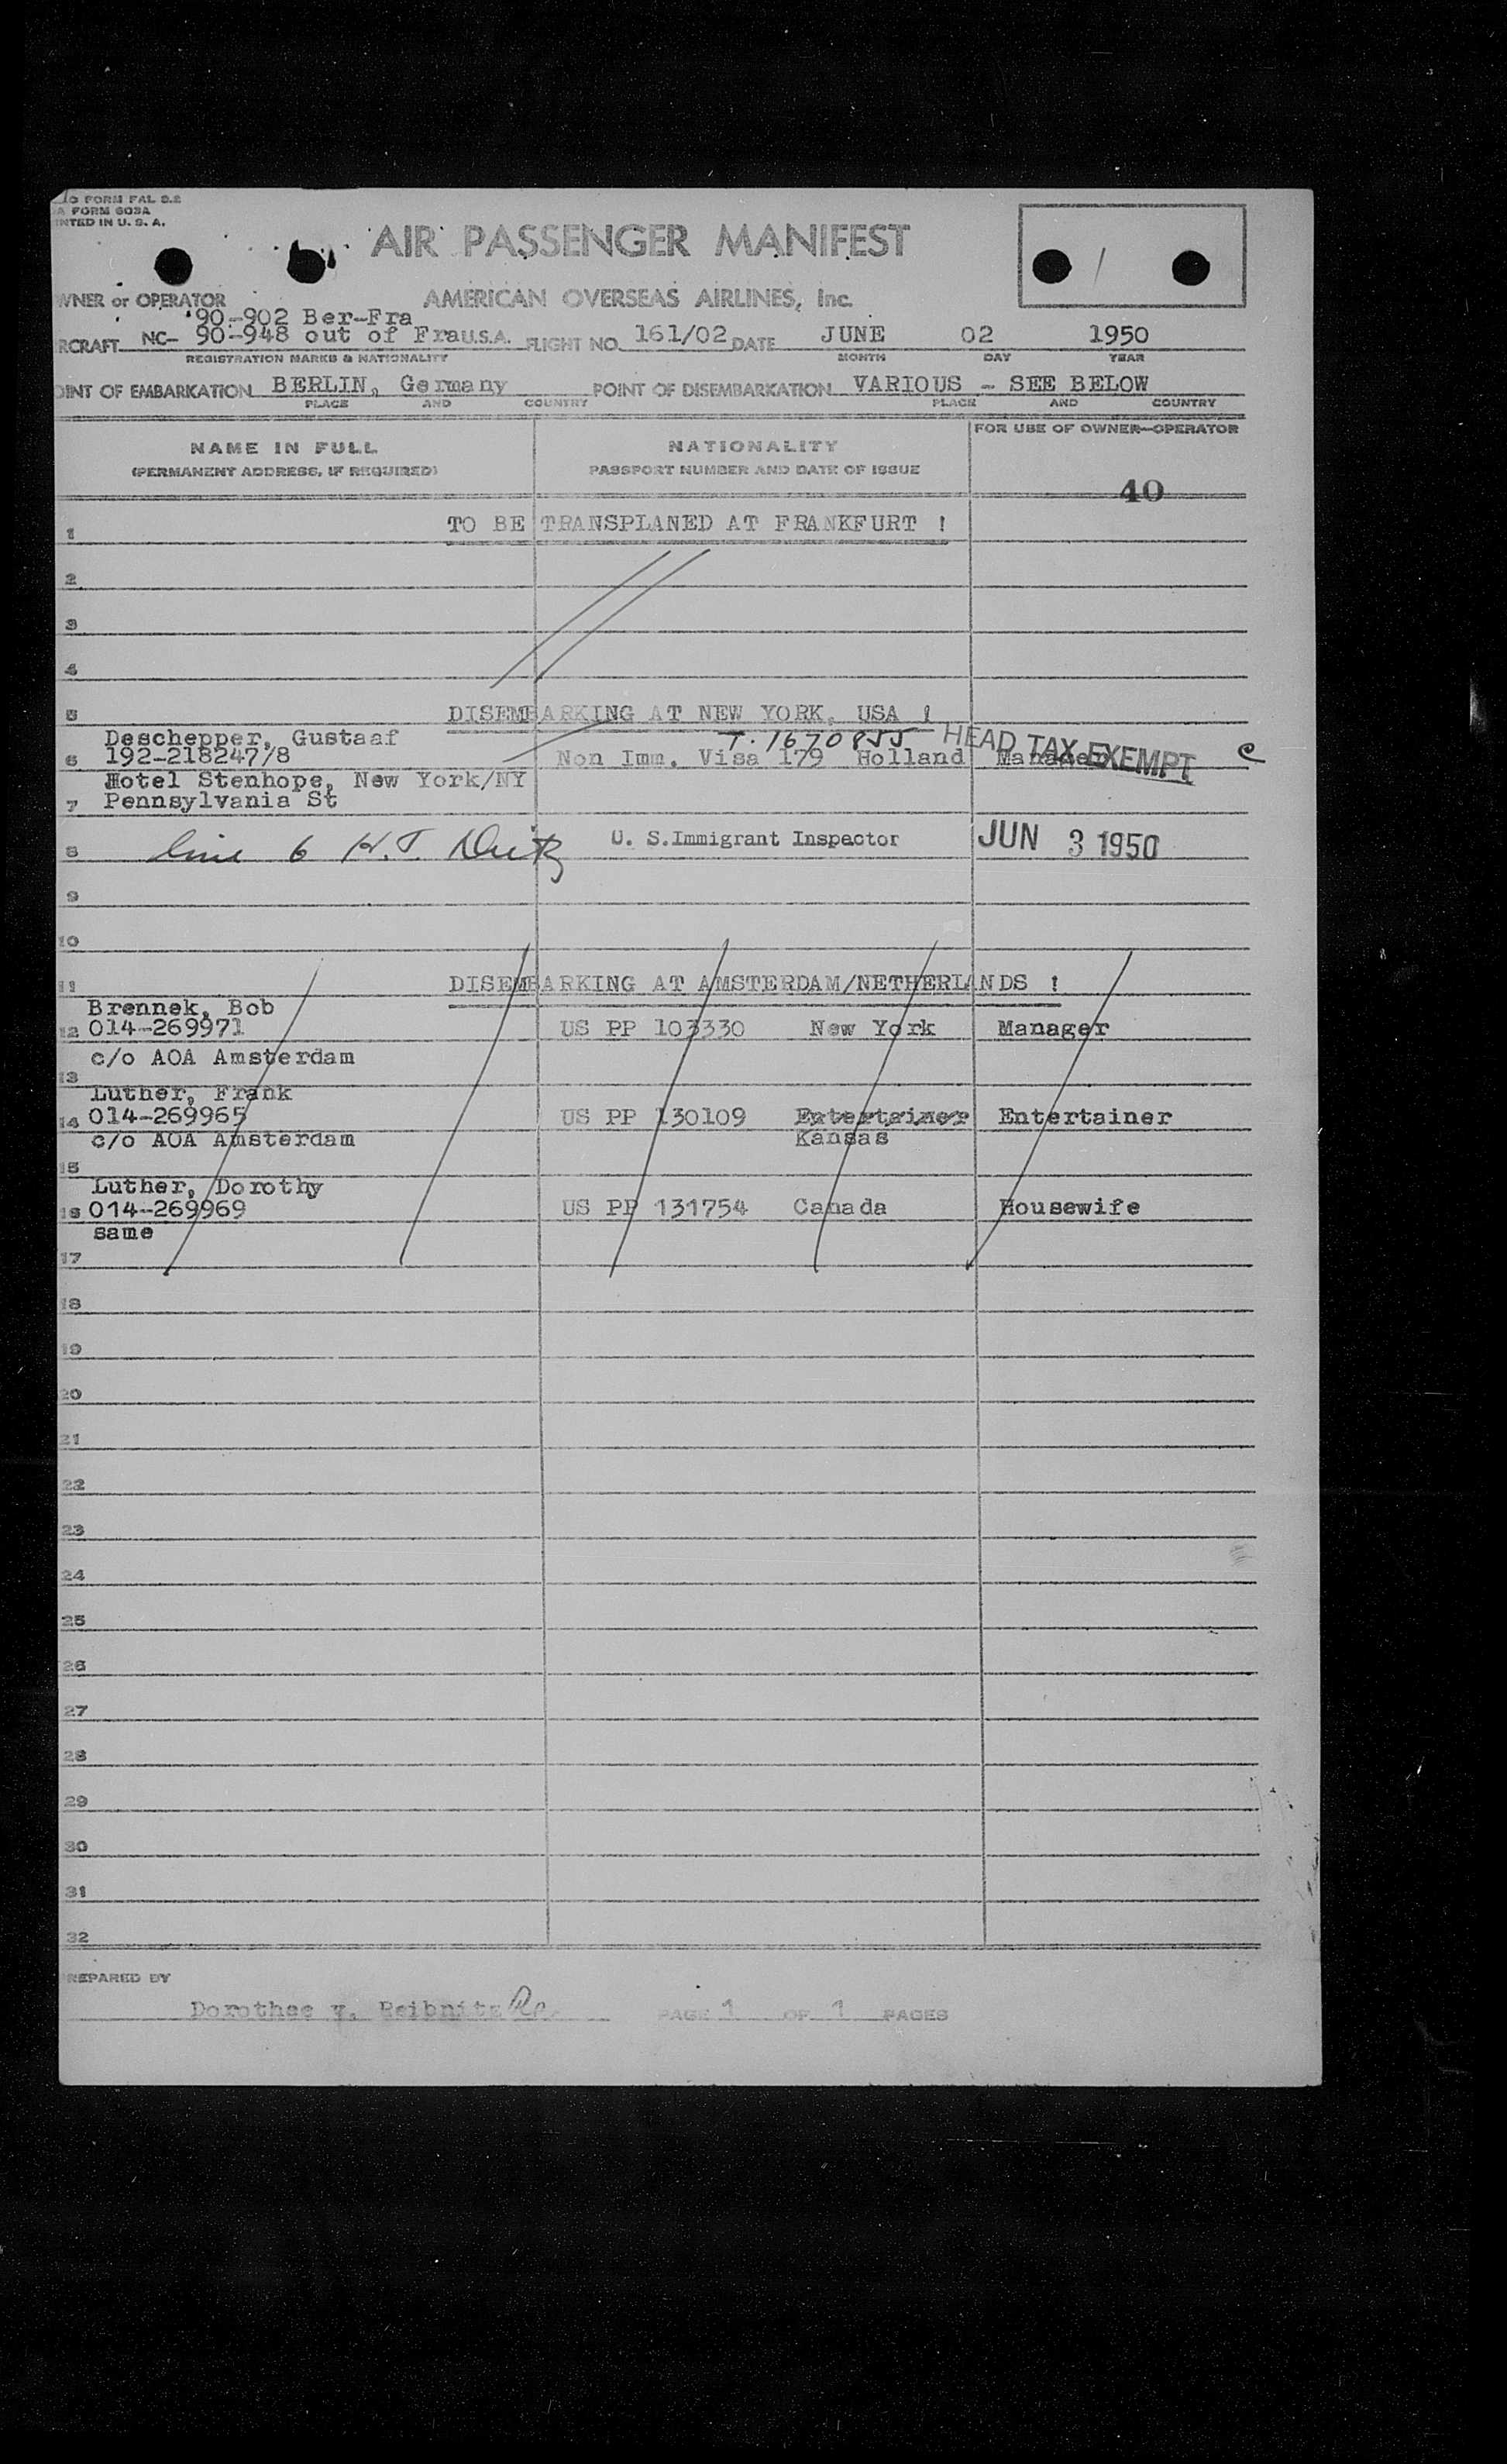 O FORM FAL 2.2
A FORM 603A
INTED IN U. S. A.
AIR PASSENGER MANIFEST
WNER or OPERATOR AMERICAN OVERSEAS AIRLINES, Inc.
90-902 Ber-Fra
RCRAFT NC- 90-948 out of Fra U.S.A. FLIGHT NO. 161/02 DATE JUNE 02 1950
REGISTRATION MARKS & NATIONALITY MONTH DAY YEAR
OINT OF EMBARKATION BERLIN, Germany POINT OF DISEMBARKATION VARIOUS - SEE BELOW
PLACE AND COUNTRY PLACE AND COUNTRY
NAME IN FULL NATIONALITY FOR USE OF OWNER-OPERATOR
(PERMANENT ADDRESS, IF REQUIRED) PASSPORT NUMBER AND DATE OF ISSUE
40
1 TO BE TRANSPLANED AT FRANKFURT !
2
3
4
5 DISEMBARKING AT NEW YORK, USA !
Deschepper, Gustaaf T. 1670855 HEAD TAX EXEMPT
6 192-218247/8 Non Imm. Visa 179 Holland Manager c
Hotel Stenhope, New York/NY
7 Pennsylvania St
8 line 6 H.J. U. S. Immigrant Inspector JUN 3 1950
9
10
11 DISEMBARKING AT AMSTERDAM/NETHERLANDS !
Brennek, Bob
12 014-269971 US PP 103330 New York Manager
c/o AOA Amsterdam
13
Luther, Frank
14 014-269965 US PP 130109 Entertainer Entertainer
c/o AOA Amsterdam Kansas
15
Luther, Dorothy
16 014-269969 US PP 131754 Canada Housewife
same
17
18
19
20
21
22
23
24
25
26
27
28
29
30
31
32
REPARED BY
Dorothee v. Reibnitz PAGE 1 OF 1 PAGES